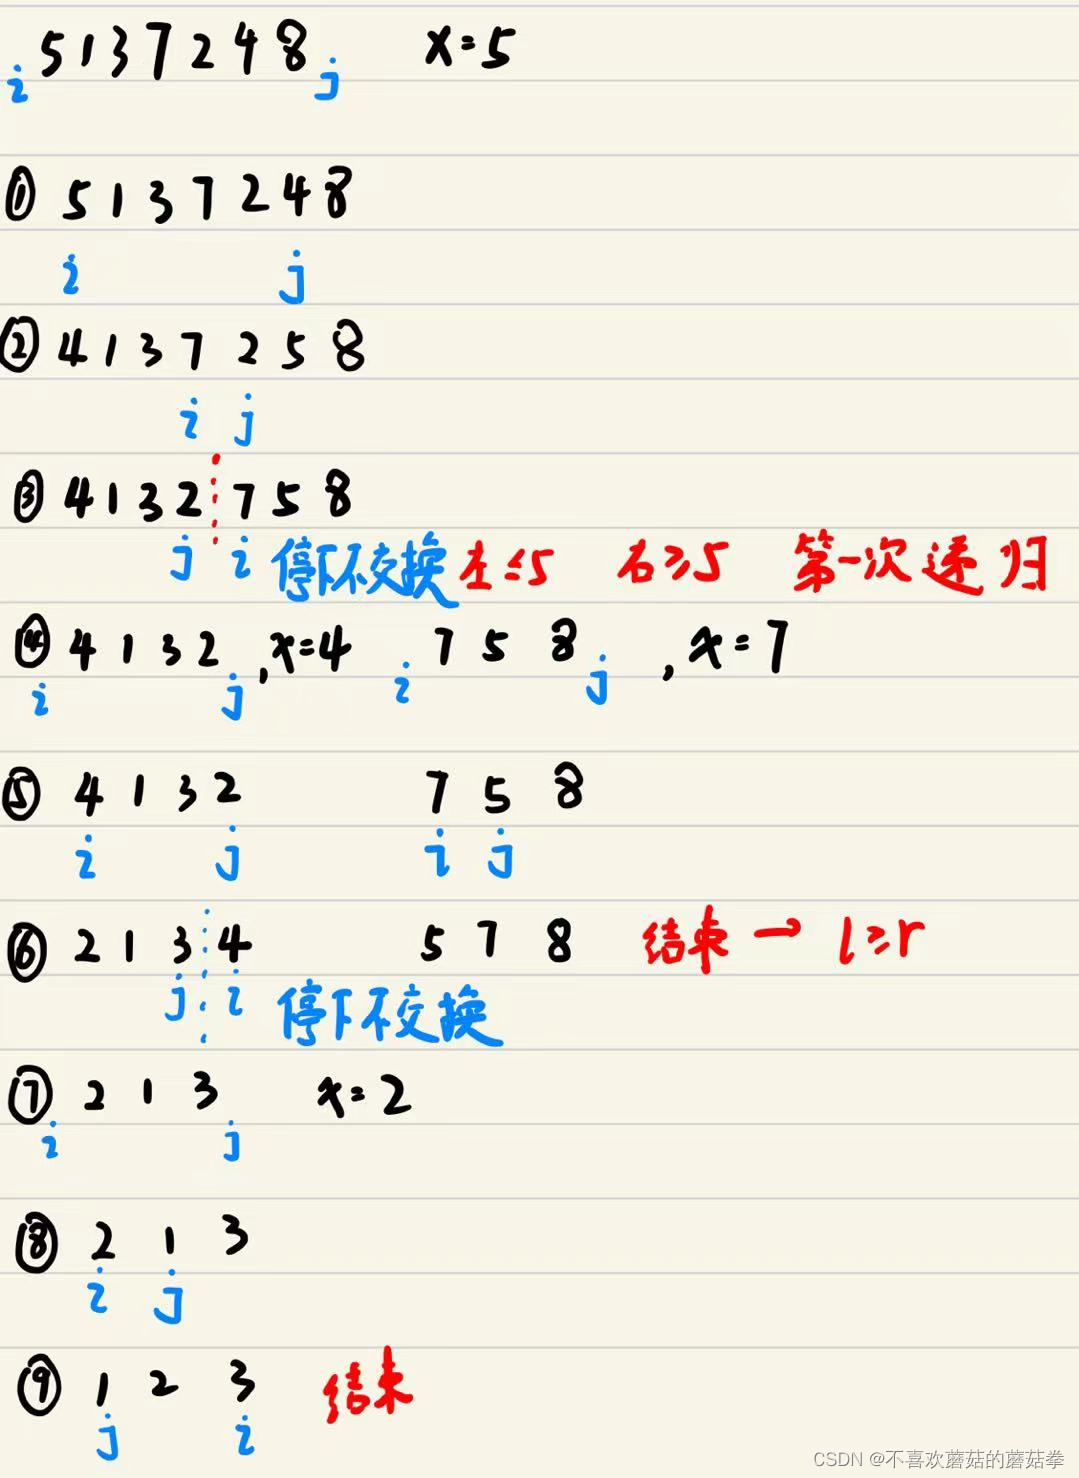 5 1 3 7 2 4 8 x=5
i j
① 5 1 3 7 2 4 8
i j
② 4 1 3 7 2 5 8
i j
③ 4 1 3 2 7 5 8
j i 停下不交换 左≤5 右≥5 第一次递归
④ 4 1 3 2 , x=4 7 5 8 , x=7
i j i j
⑤ 4 1 3 2 7 5 8
i j i j
⑥ 2 1 3 4 5 7 8 结束 → l≥r
j i 停下不交换
⑦ 2 1 3 x=2
i j
⑧ 2 1 3
i j
⑨ 1 2 3 结束
j i
CSDN @不喜欢蘑菇的蘑菇拳